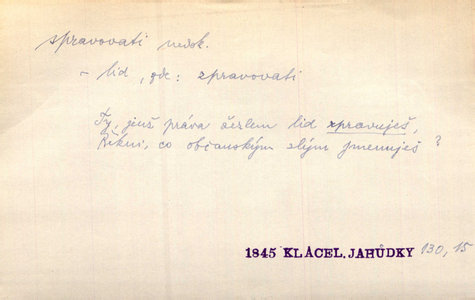 spravovati nedok.
– lid, gde: zpravovati
Ty, jenž práva žezlem lid zpravuješ,
Řekni, co občanským zlým jmenuješ?
1845 KLÁCEL, JAHŮDKY 130, 15